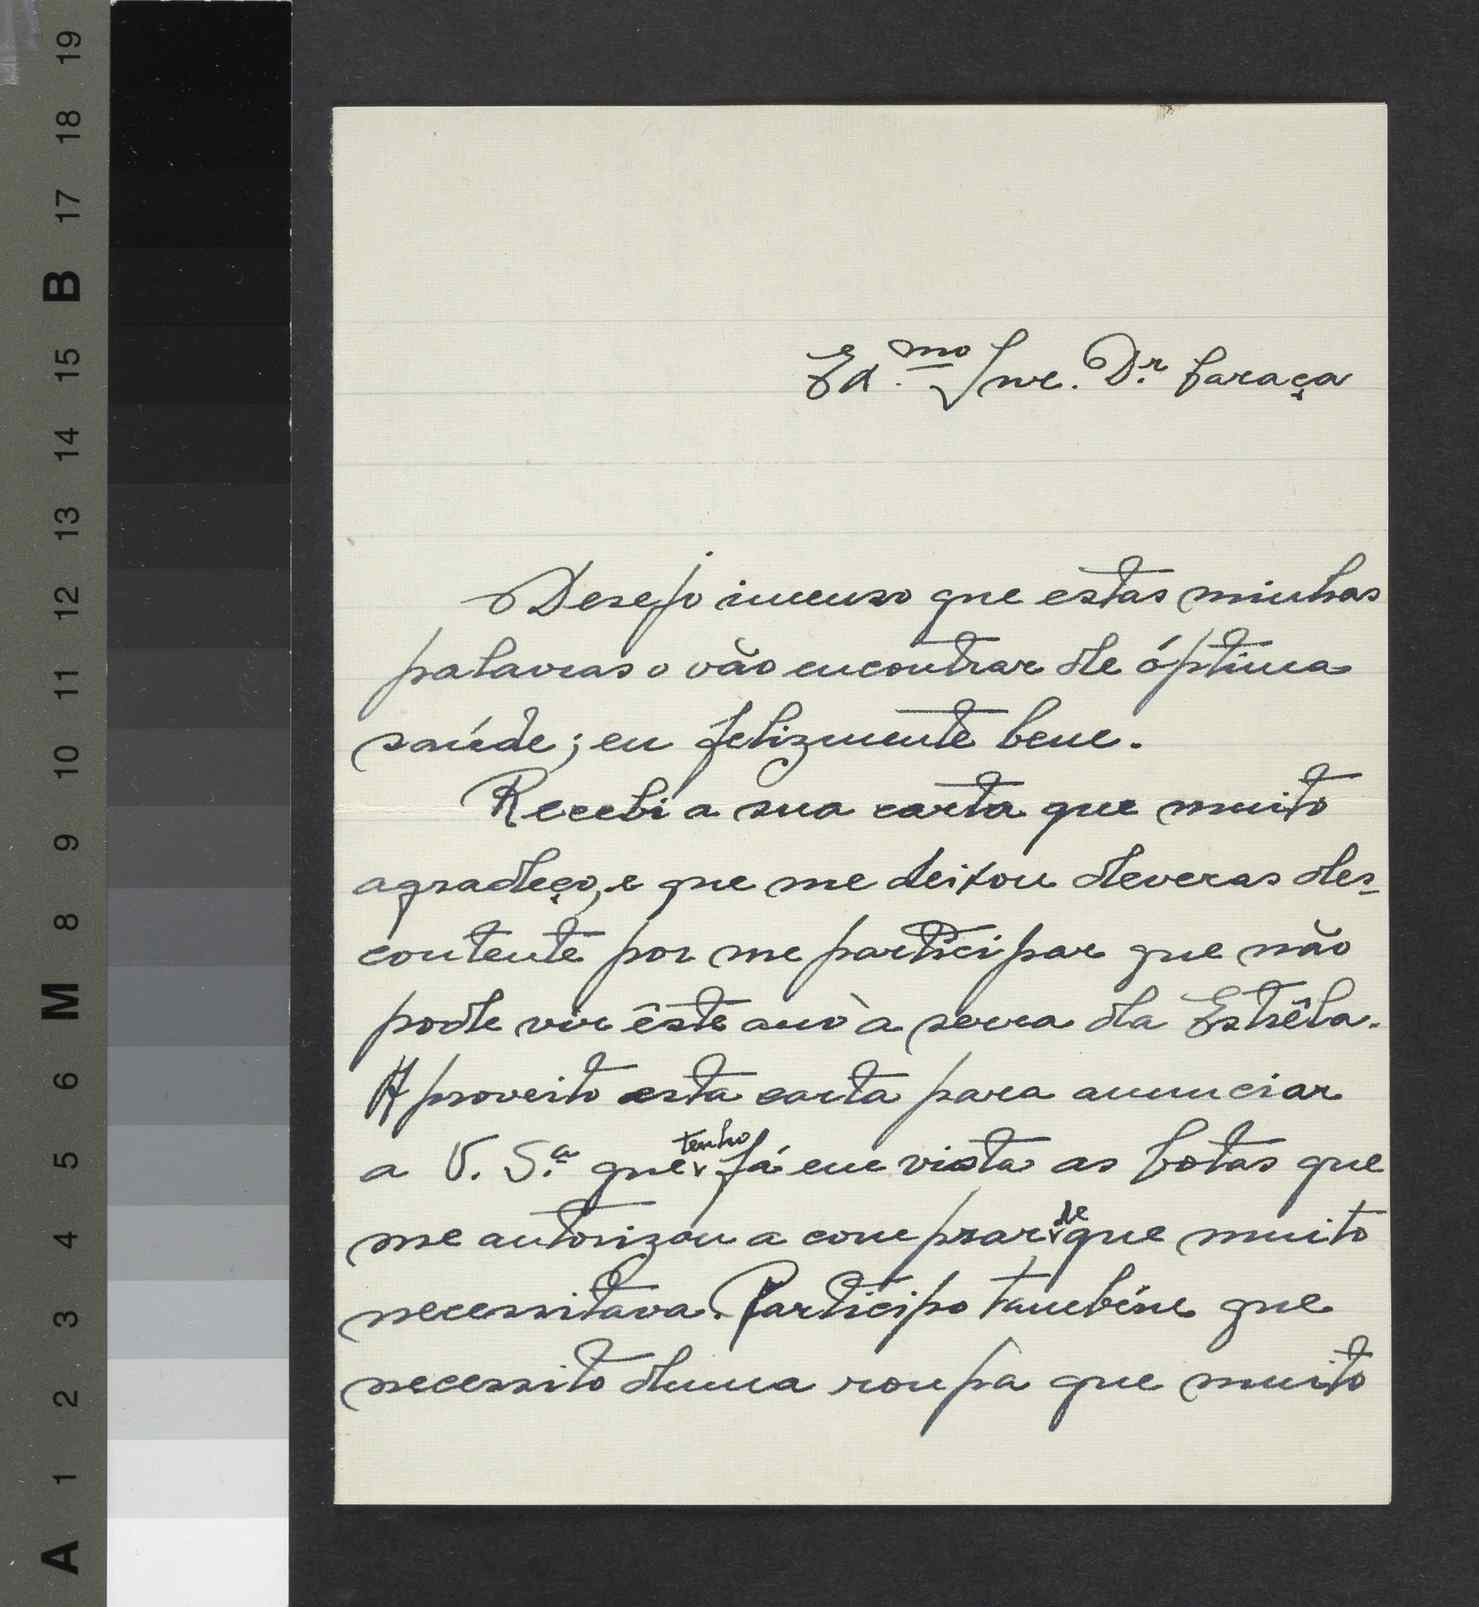 19
18
17
B
15
14
13
12
11
10
9
8
M
6
5
4
3
2
1
A
Ex.mo Snr. Dr. Caraça
Desejo imenso que estas minhas
palavras o vão encontrar de óptima
saúde; eu felizmente bem.
Recebi a sua carta que muito
agradeço, e que me deixou deveras des-
contente por me participar que não
pode vir êste ano à serra da Estrêla.
Aproveito esta carta para anunciar
a V. S.ª que tenho já em vista as botas que
me autorizou a comprar de que muito
necessitava. Participo também que
necessito duma roupa que muito